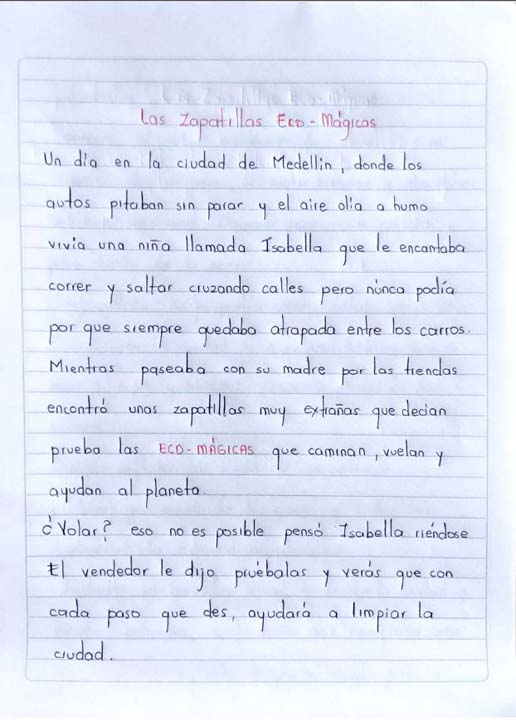 Las Zapatillas Eco-Mágicas
Un día en la ciudad de Medellin, donde los
autos pitaban sin parar y el aire olia a humo
vivia una niña llamada Isabella que le encantaba
correr y saltar cruzando calles pero núnca podía
por que siempre quedaba atrapada entre los carros.
Mientras paseaba con su madre por las tiendas
encontró unas zapatillas muy extrañas que decian
prueba las ECO-MÁGICAS que caminan, vuelan y
ayudan al planeta.
¿Volar? eso no es posible pensó Isabella riéndose
El vendedor le dijo pruébalas y verás que con
cada paso que des, ayudará a limpiar la
ciudad.